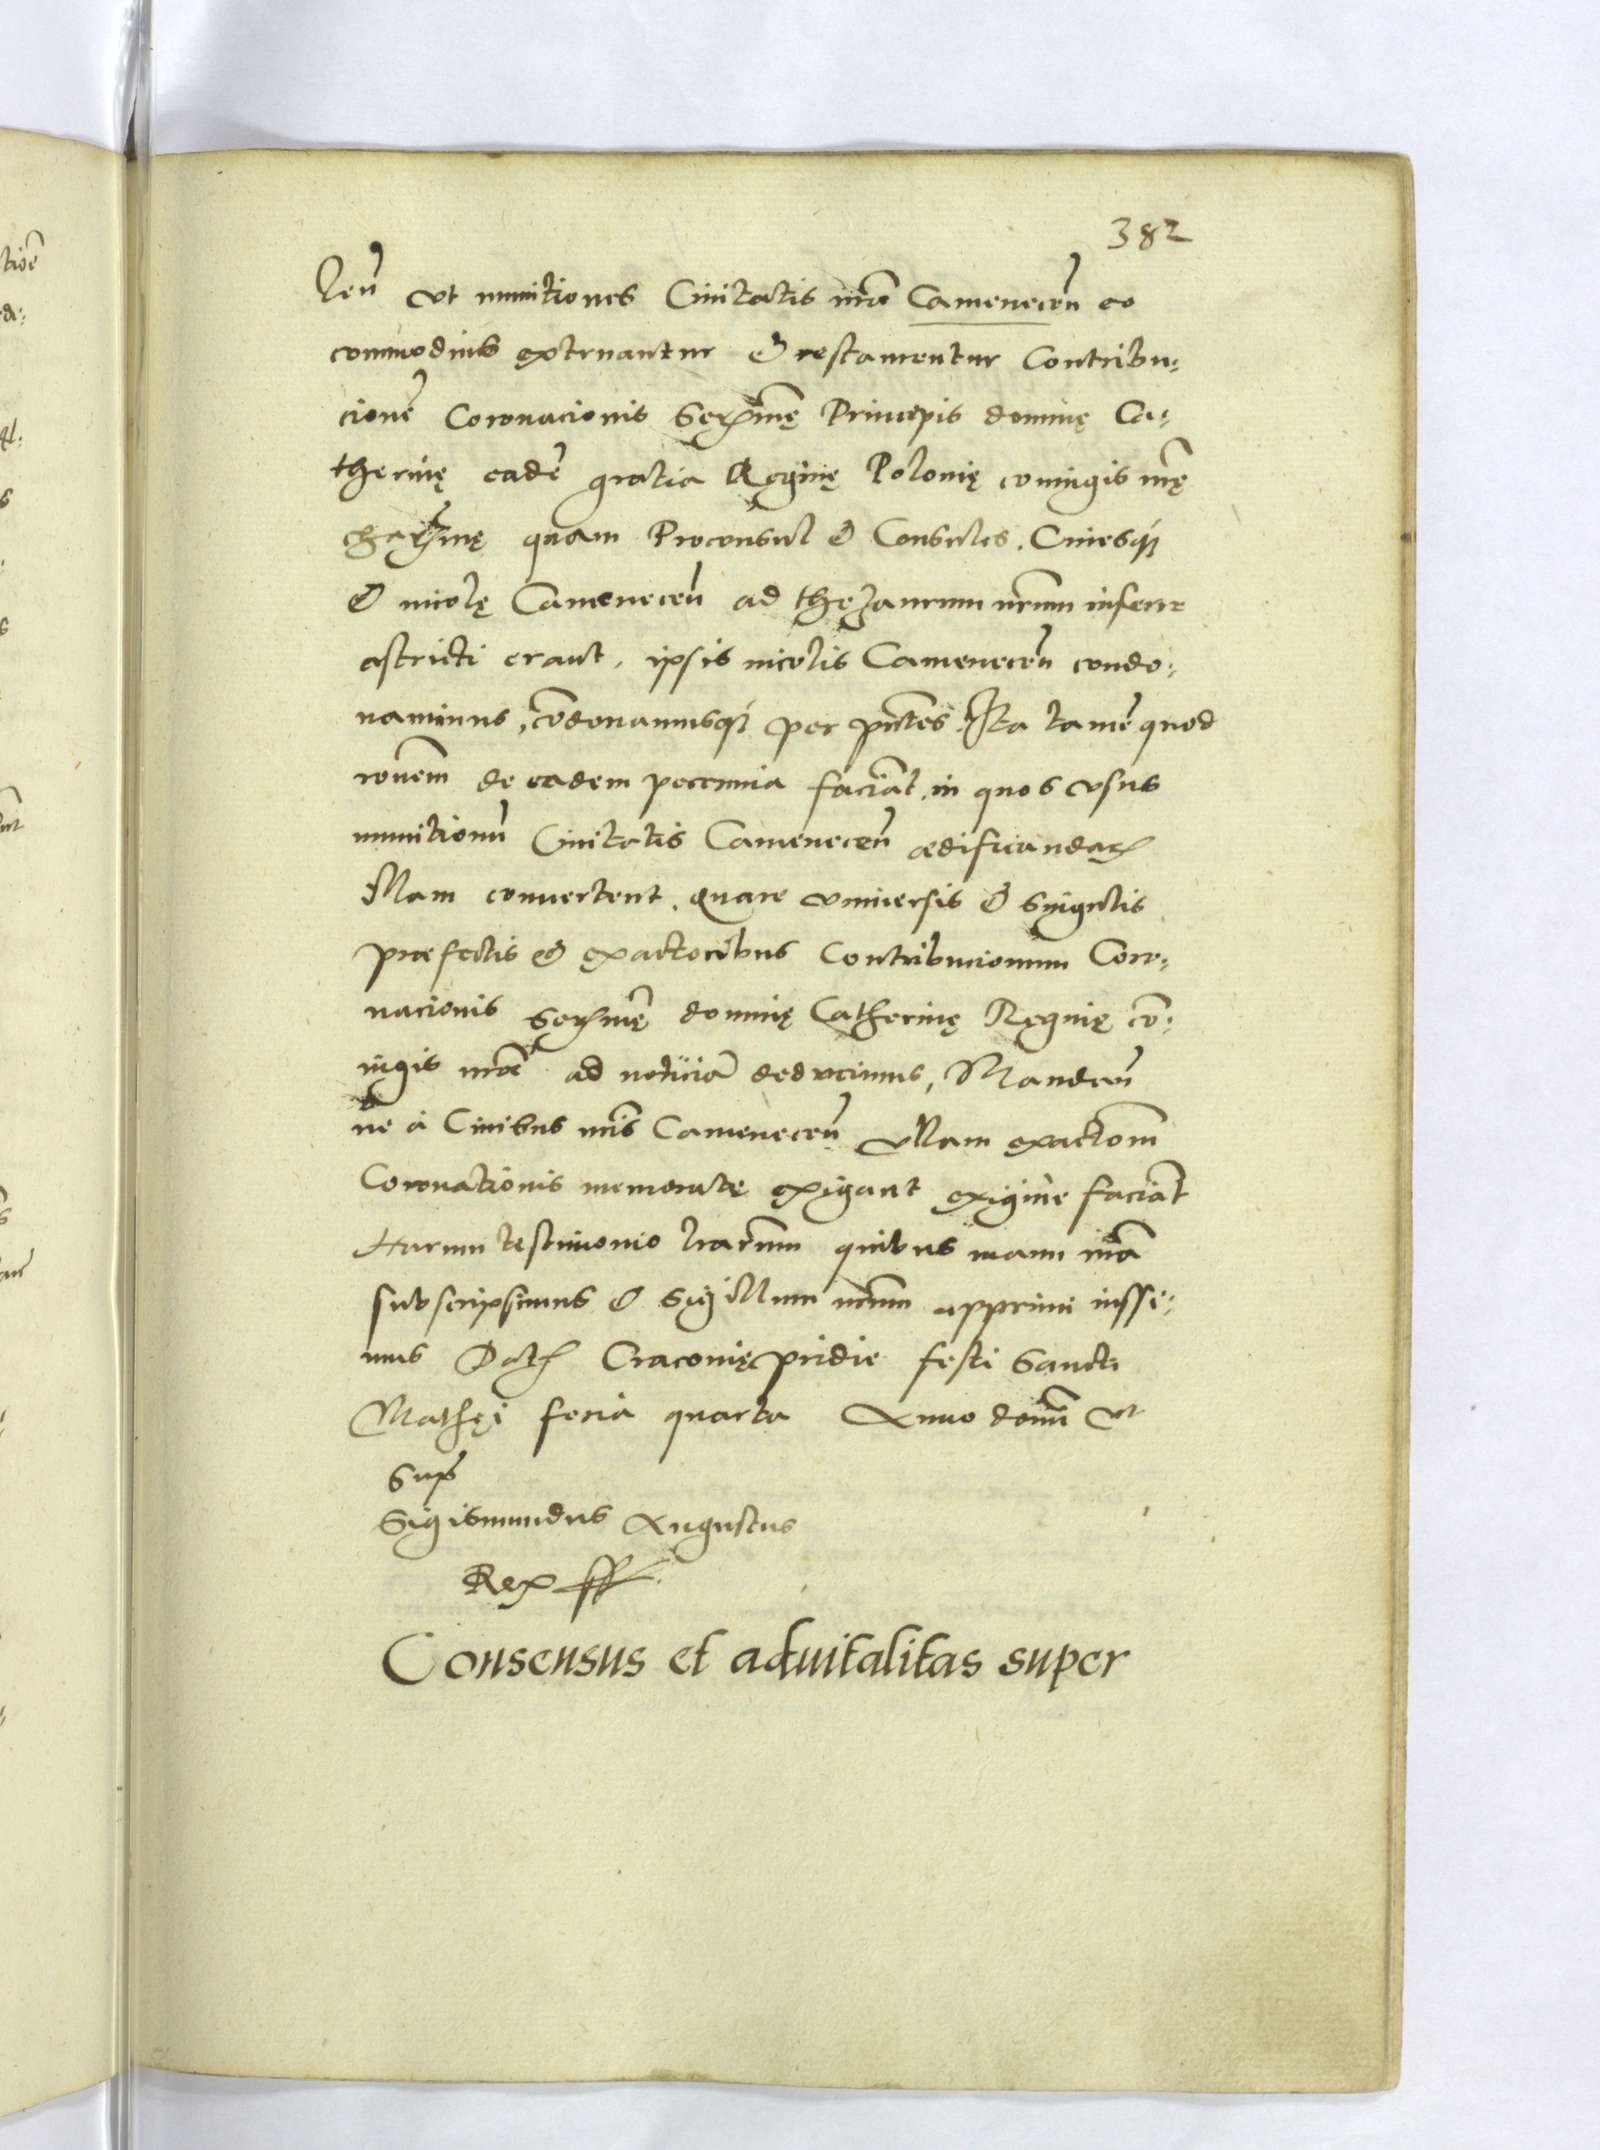 382
leñ ut munitiones Civitatis nr̃ae Camenecen̄ eo
commodius extruantur & restaurentur Contribu⸗
cionē Coronacionis Serẽmę Principis dominę Ca⸗
therinę eadē gratia Reginę Polonię coniugis nr̃ę
charissmę quam Proconsul & Consules. Civesq́
& incolę Camenecen̄ ad thezaurum nr̃um inferre
astricti erant, ipsis incolis Camenecen̄ condo⸗
naminus, cõdonamusq́ per pñtes. Ita tamē quod
rõnem de eadem peccunia faciãt, in quos usus
munitionũ Civitatis Camenecen̄ ædificandaꝝ
illam convertent. Quare universis & singulis
præfectis & exactoribus Contribucionum Coro⸗
nacionis Serẽmę dominę Catherinę Reginę cõ⸗
iugis nr̃ae ad noticiã deducimus, Mandan̄
ne à Civibus nr̃is Camenecen̄ ullam exactiõm
Coronationis memoratę exigant exigive faciãt
Harum testimonio lr̃arum quibus manu nr̃a
subscripsimus & sigillum nr̃um apprimi iussi⸗
mus Datꝭ Cracovię pridie festi Sancti
Mathęi feria quarta Anno domĩ ut
Supꝭ
Sigismundus Augustus
Rex ff
Consensus et advitalitas super
tioẽ
de: